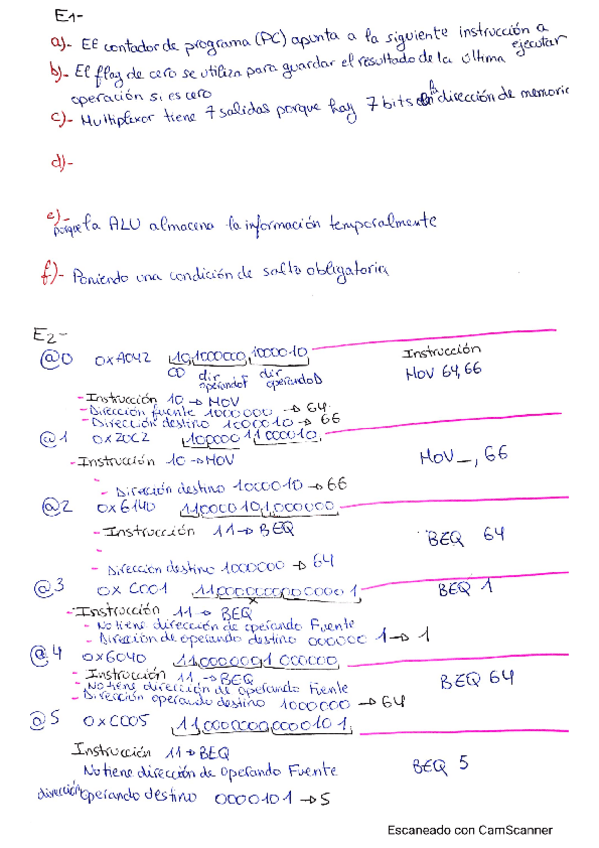 E1-
a)- El contador de programa (PC) apunta a la siguiente instrucción a ejecutar
b)- El flag de cero se utiliza para guardar el resultado de la última
operación si es cero
c)- Multiplexor tiene 7 salidas porque hay 7 bits en la dirección de memoria
d)-
e)-
porque la ALU almacena la información temporalmente
f)- Poniendo una condición de salto obligatoria
E2-
@0 0xA042 10,1000000,1000010 Instrucción
CO dir operandoF dir operandoD MOV 64,66
- Instrucción 10 → MOV
- Dirección fuente 1000000 → 64
- Dirección destino 1000010 → 66
@1 0x20C2 100000 11000010, MOV _, 66
- Instrucción 10 → MOV
-
- Dirección destino 1000010 → 66
@2 0x6140 11,0000 10,1,000000
- Instrucción 11 → BEQ BEQ 64
-
- Dirección destino 1000000 → 64
@3 0x C001 11,00000000000001 BEQ 1
- Instrucción 11 → BEQ
- No tiene dirección de operando Fuente
- Dirección de operando destino 000000 1 → 1
@4 0x6040 11,0000001 000000
- Instrucción 11 → BEQ BEQ 64
- No tiene dirección de operando fuente
- Dirección operando destino 1000000 → 64
@5 0xC005 11,0000000,0000101
Instrucción 11 → BEQ
No tiene dirección de operando Fuente BEQ 5
dirección operando destino 0000101 → 5
Escaneado con CamScanner